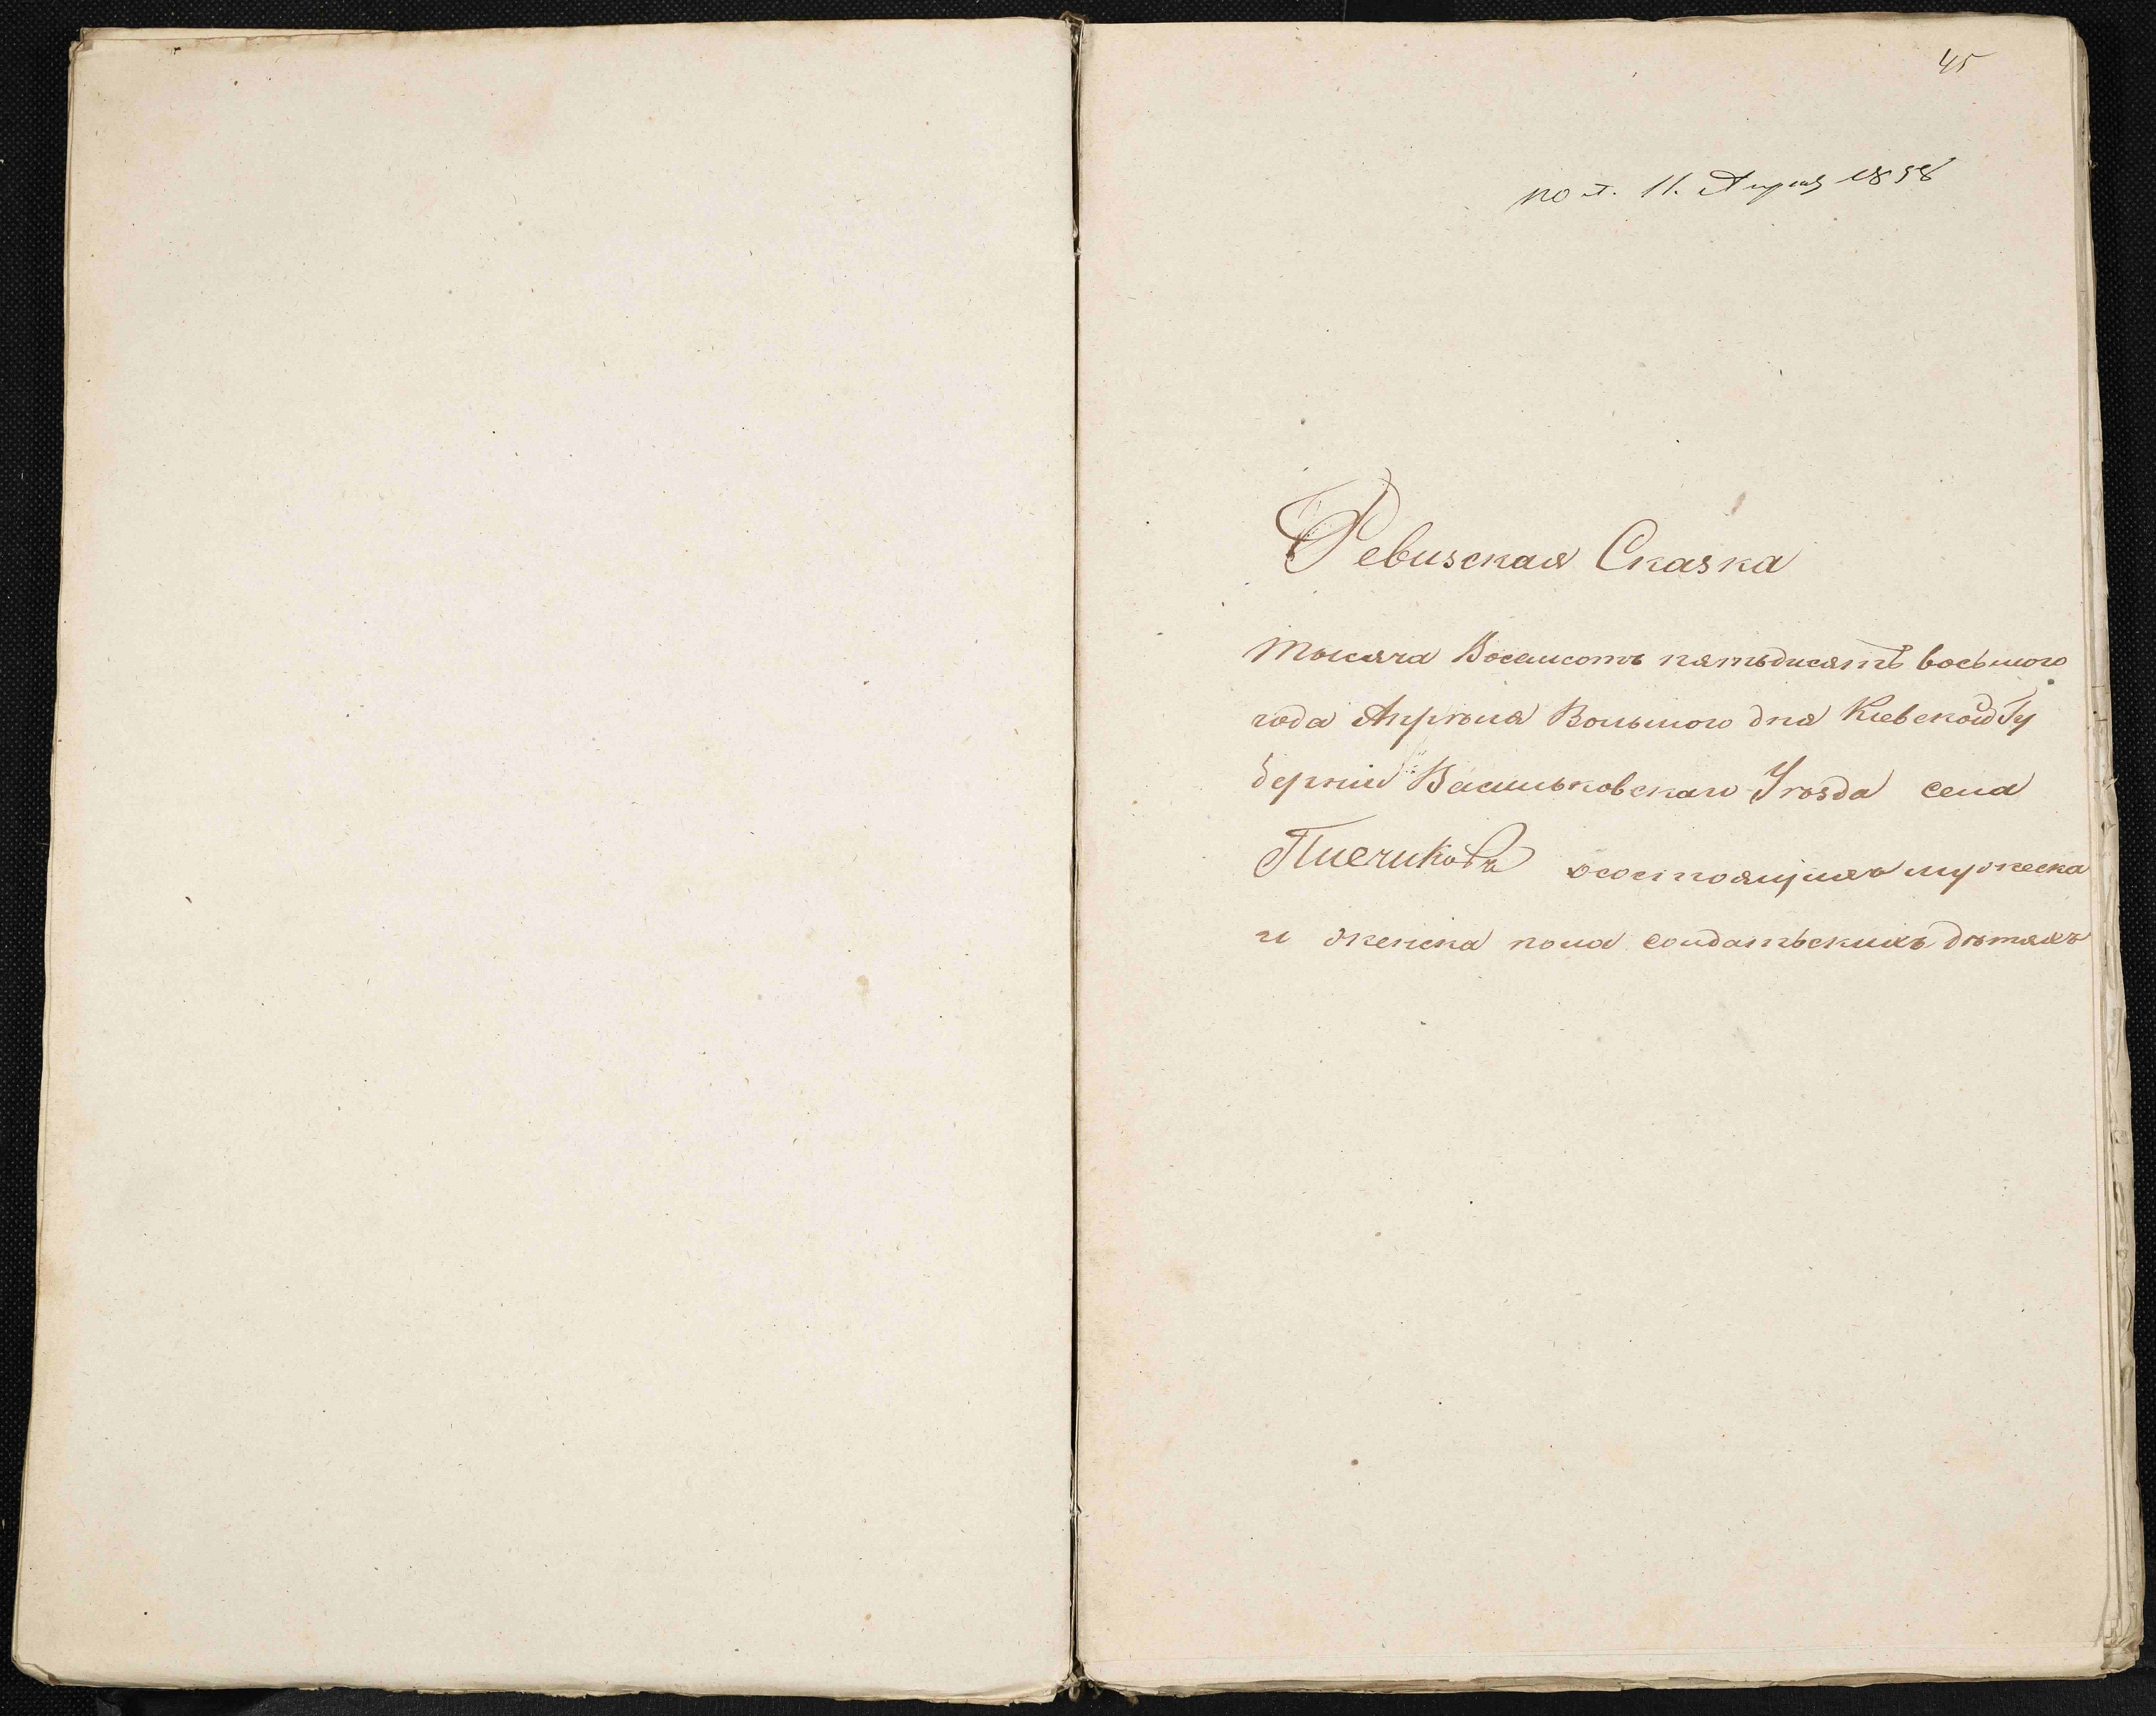 45
пол. 11. Апреля 1858
Ревизская Сказка
Тысяча Восемсотъ пятьдисятъ восьмого
года Апрѣля Восьмого дня Кіевской Гу
берніи Васильковскаго Уѣзда села
Пиечиковъ о состоящихъ мужеска
и женска пола солдатьскихъ дѣтяхъ